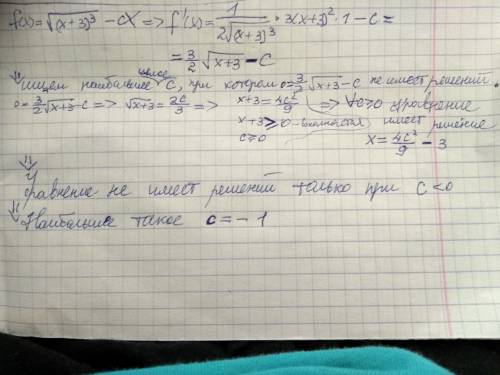 f(x)=√(x+3)³ - cx => f'(x)= 1/(2√(x+3)³) · 3(x+3)²·1 - c =
= 3/2 √x+3 - c
⇓ ищем наибольшее целое c, при котором 0=3/2 √x+3 - c не имеет решений.
0=3/2 √x+3 - c => √x+3 = 2c/3 => x+3=4c²/9 => ∀c≥0 уравнение
x+3≥0 - имеет решение
c≥0 x=4c²/9 - 3
⇓
Уравнение не имеет решений только при c<0
⇓ Наибольшее такое c=-1